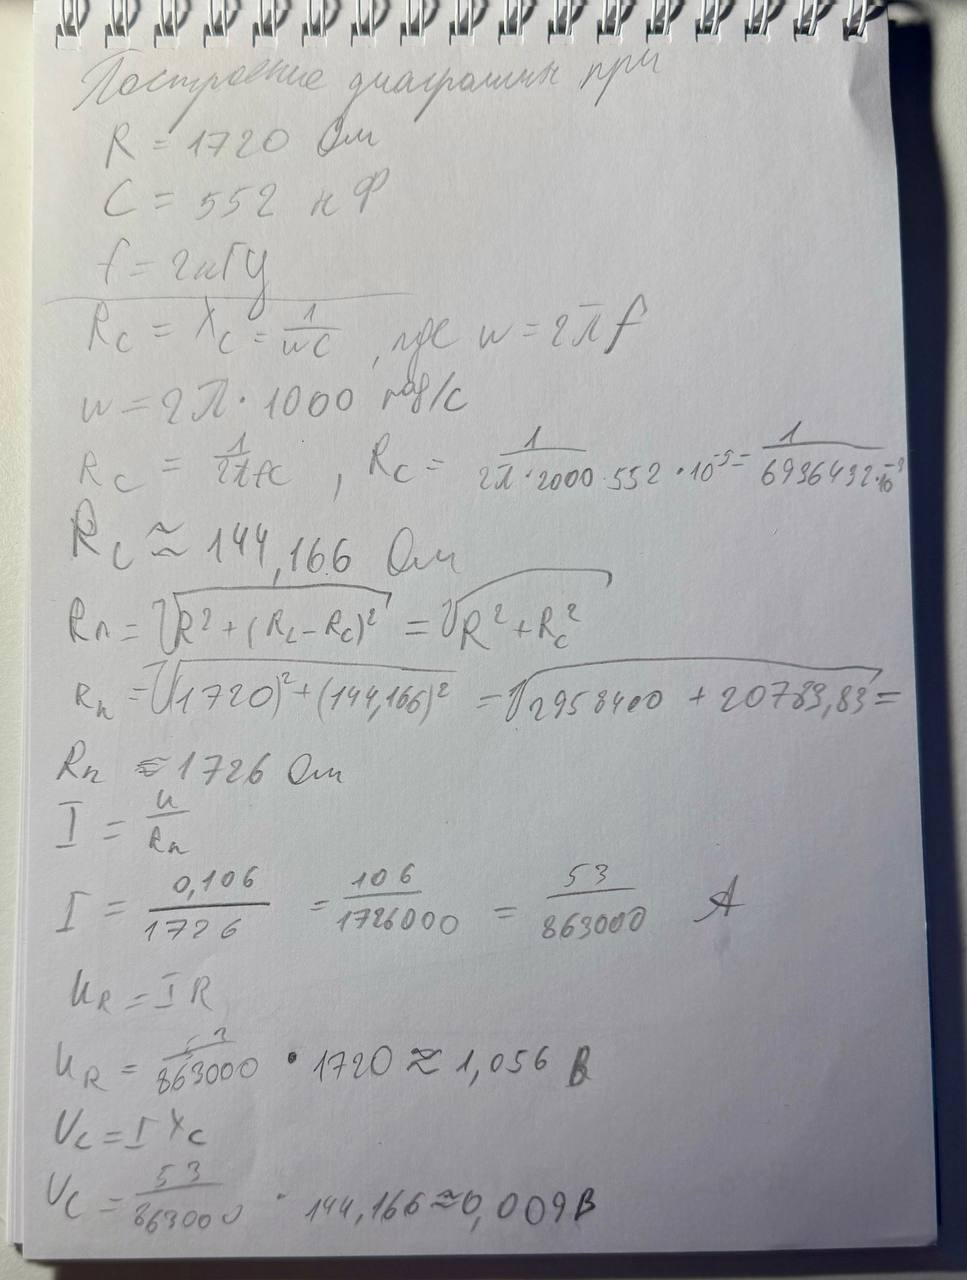 Построение диаграммы при
R = 1720 Ом
C = 552 нФ
f = 2кГц
R_C = X_C = 1/wC , где w = 2πf
w = 2π · 1000 рад/с
R_C = 1/2πfC , R_C = 1/2π·2000·552·10^-9 = 1/6936432·10^-9
R_C ≈ 144,166 Ом
Rп = √R² + (R_L - R_C)² = √R² + R_C²
Rп = √(1720)² + (144,166)² = √2958400 + 20783,83 =
Rп = 1726 Ом
I = u/Rп
I = 0,106/1726 = 106/1726000 = 53/863000 A
u_R = I R
u_R = 53/863000 · 1720 ≈ 1,056 В
U_C = I X_C
U_C = 53/863000 · 144,166 ≈ 0,009В